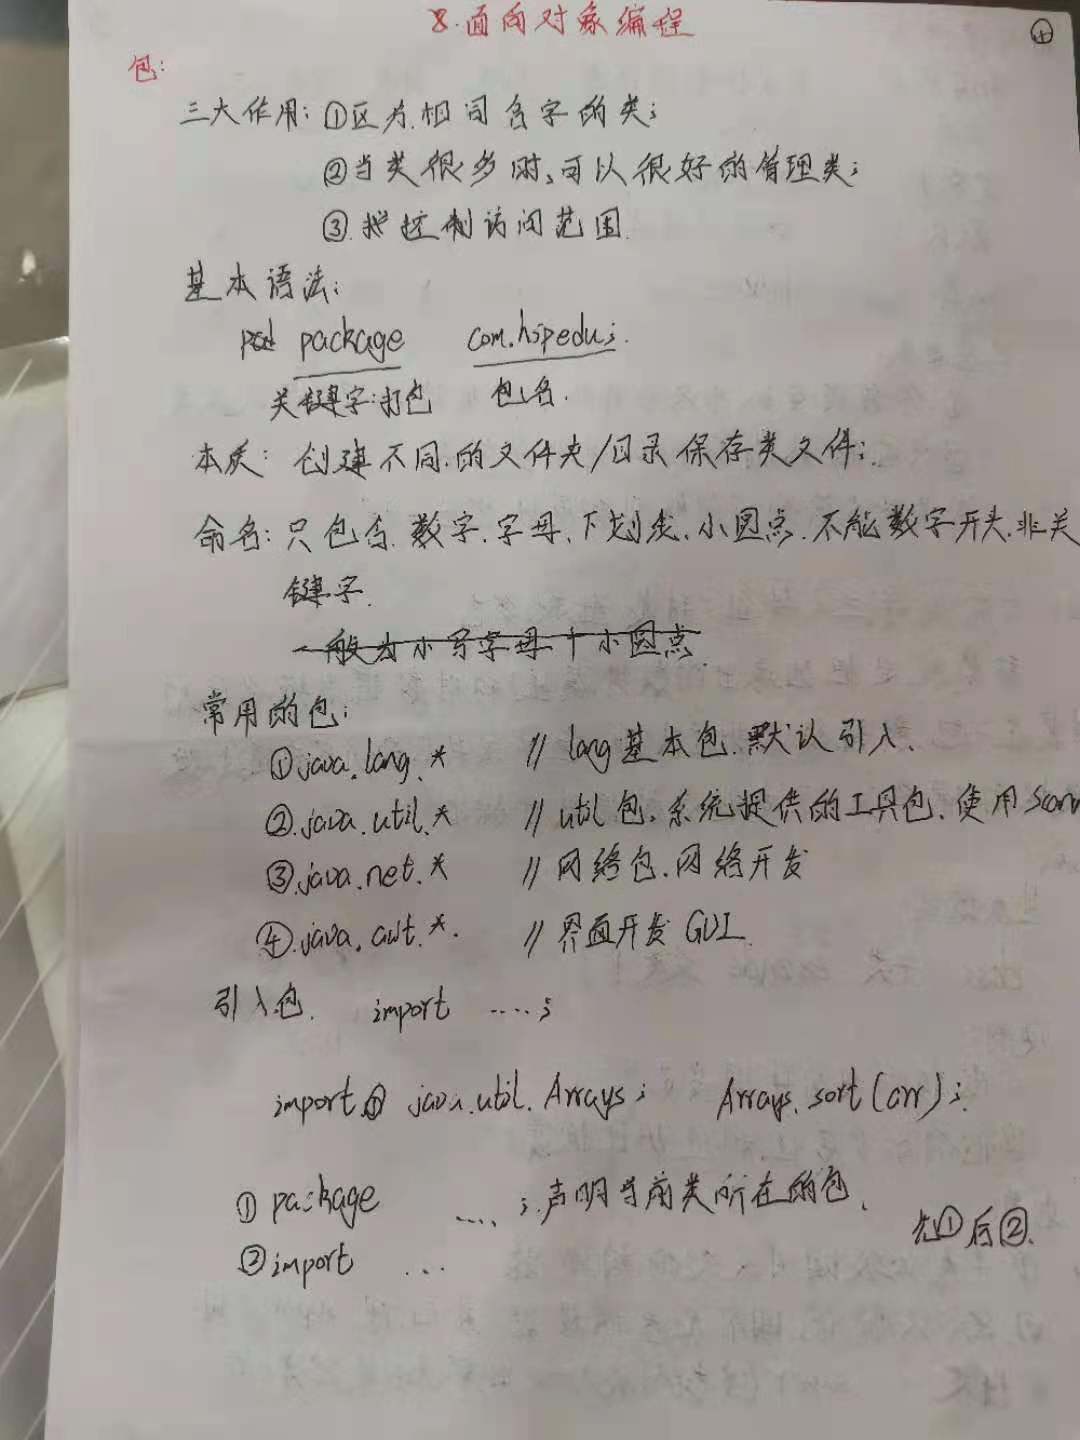 8.面向对象编程
包:
三大作用: ①区分相同名字的类;
②当类很多时,可以很好的管理类;
③ 控制访问范围.
基本语法:
package com.hspedu;
关键字:打包 包名.
本质: 创建不同的文件夹/目录保存类文件;
命名: 只包含 数字.字母、下划线、小圆点.不能数字开头.非关
键字.
一般为小写字母+小圆点.
常用的包:
①java.lang.* // lang基本包.默认引入.
②.java.util.* // util包.系统提供的工具包.使用Scann
③.java.net.* // 网络包.网络开发
④.java.awt.*. // 界面开发 GUI.
引入包. import ....;
import java.util.Arrays; Arrays.sort(arr);
① package ....;声明当前类所在的包.
② import ... 先①后②.